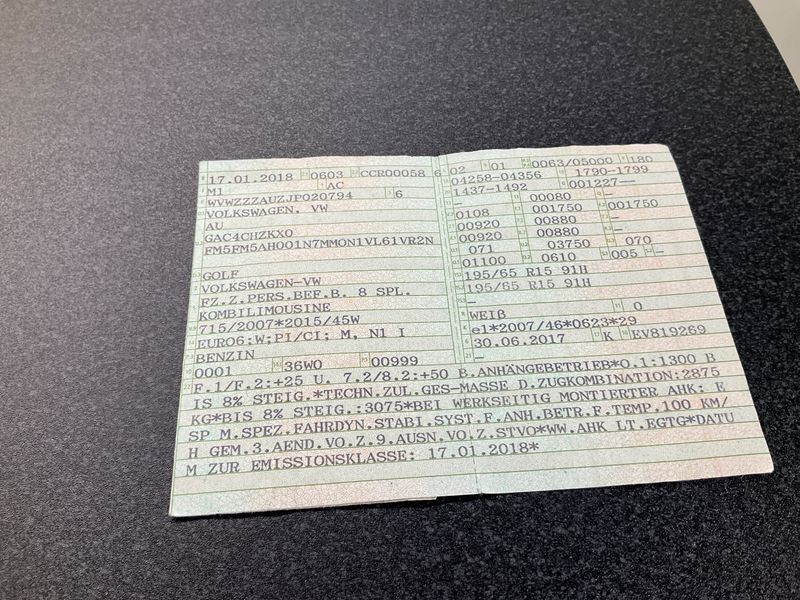 17.01.2018 0603 CCR00058 6
M1 AC
WVWZZZAUZJP020794 6
VOLKSWAGEN, VW
AU
GAC4CHZKX0
FM5FM5AH001N7MMON1VL61VR2N
GOLF
VOLKSWAGEN-VW
FZ.Z.PERS.BEF.B. 8 SPL.
KOMBILIMOUSINE
715/2007*2015/45W
EURO6;W;PI/CI; M, N1 I
BENZIN
0001 36W0 00999
02 01 0063/05000 180
04258-04356 1790-1799
1437-1492 001227--
- 00080 -
0108 001750 001750
00920 00880 -
00920 00880 -
071 03750 070
01100 0610 005 -
195/65 R15 91H
195/65 R15 91H
-
WEIß 0
e1*2007/46*0623*29
30.06.2017 K EV819269
-
F.1/F.2:+25 U. 7.2/8.2:+50 B.ANHÄNGEBETRIEB*O.1:1300 B
IS 8% STEIG.*TECHN.ZUL.GES-MASSE D.ZUGKOMBINATION:2875
KG*BIS 8% STEIG.:3075*BEI WERKSEITIG MONTIERTER AHK: E
SP M.SPEZ.FAHRDYN.STABI.SYST.F.ANH.BETR.F.TEMP.100 KM/
H GEM.3.AEND.VO.Z.9.AUSN.VO.Z.STVO*WW.AHK LT.EGTG*DATU
M ZUR EMISSIONSKLASSE: 17.01.2018*